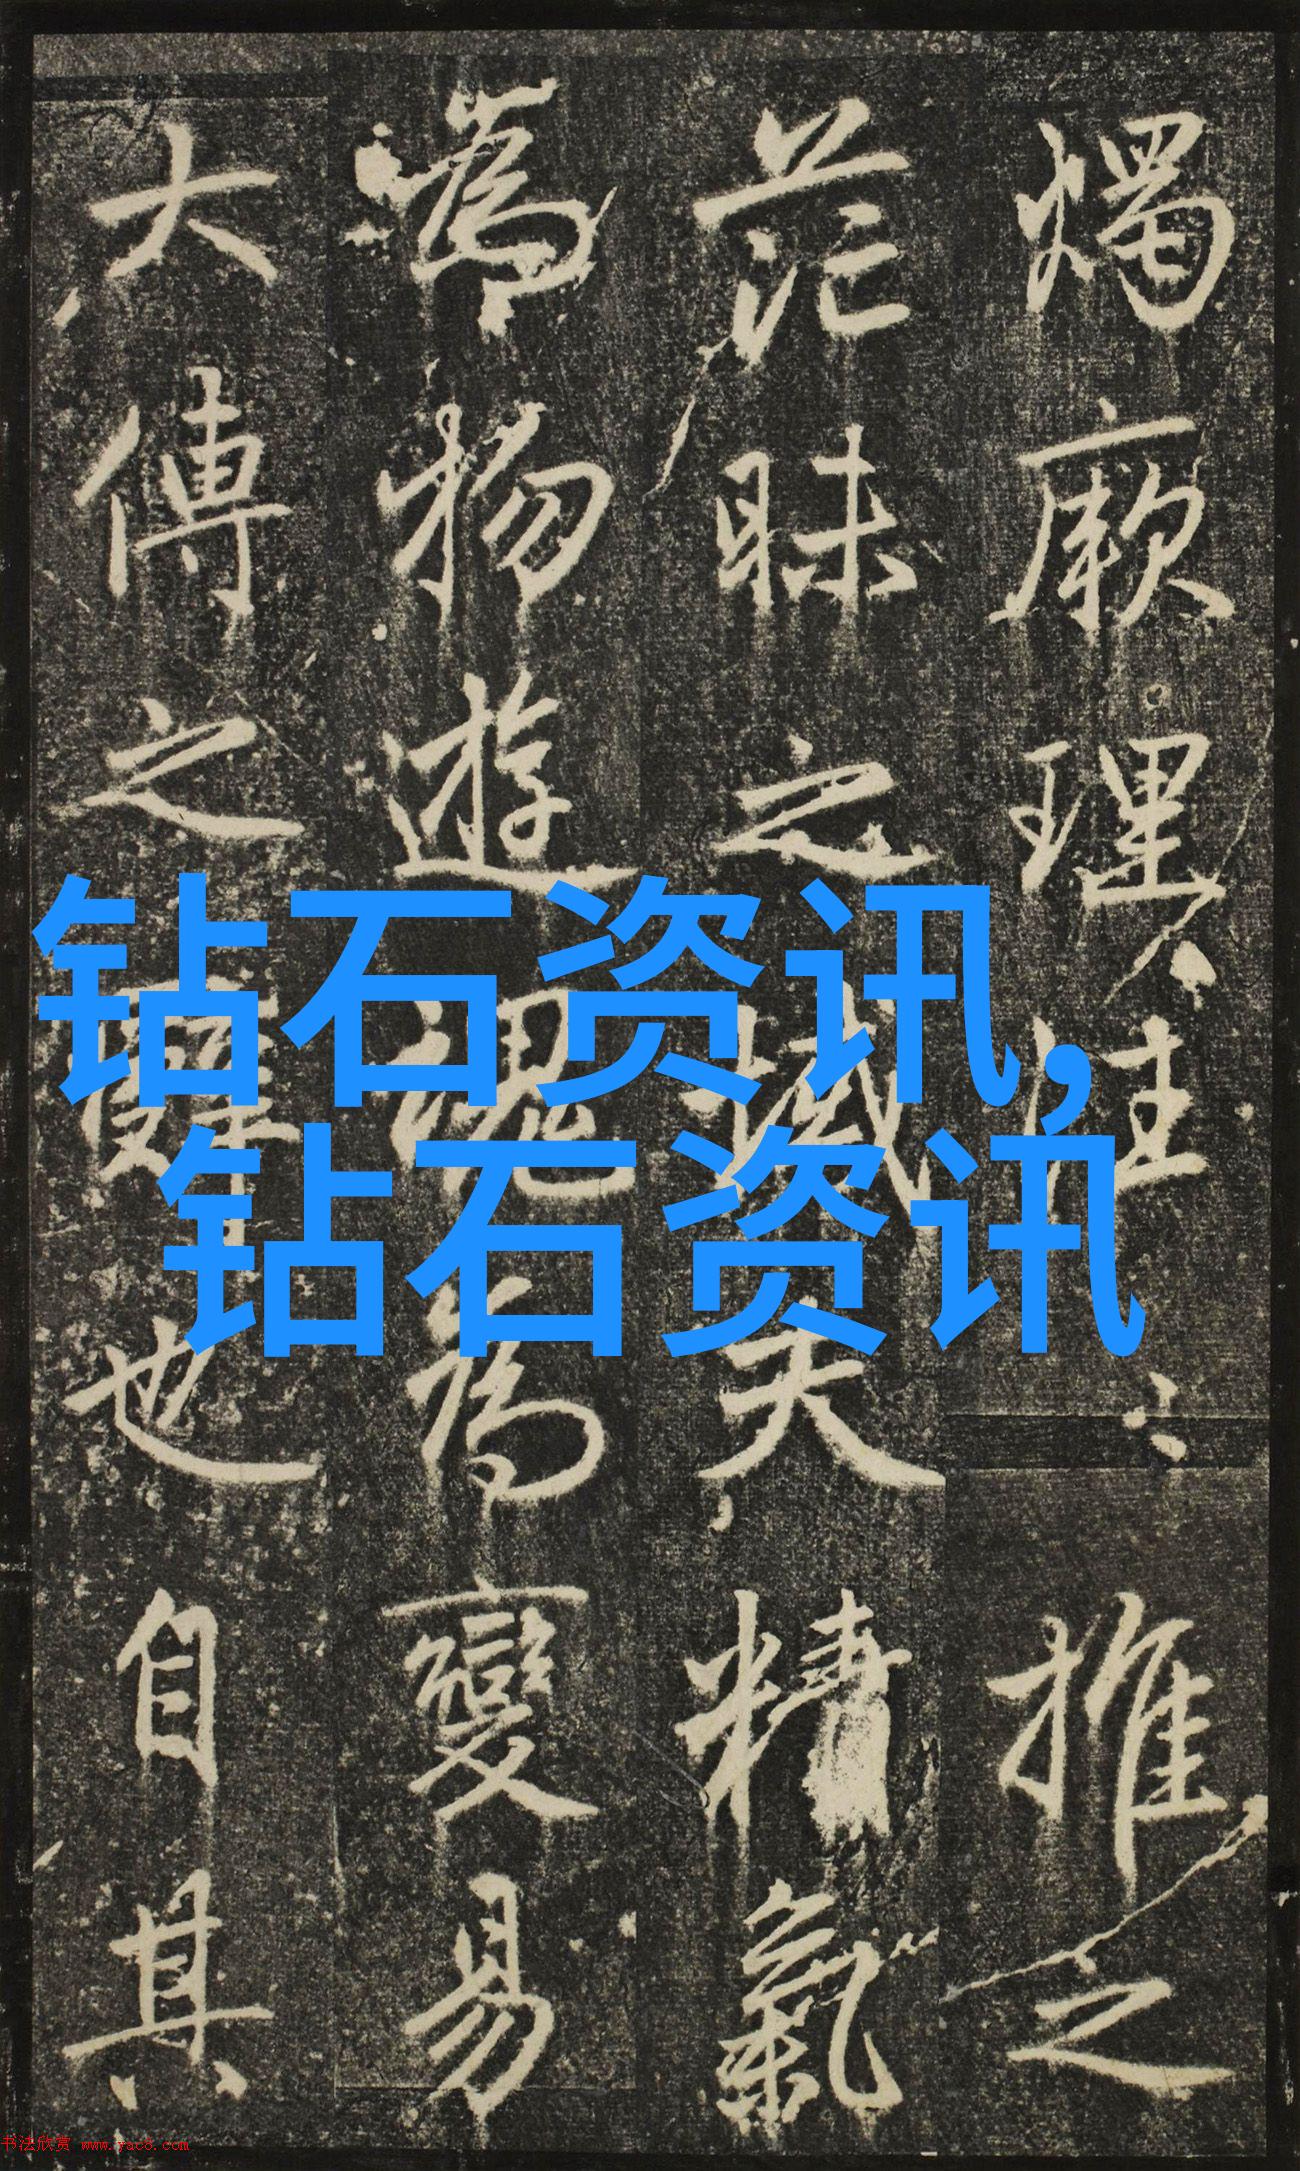 燭厥理往〻推之
茫昧之域夫精氣
為物遊魂為變易
大傳之辭也自其
钻石资讯,
钻石资讯
书法欣赏 www.yac8.com